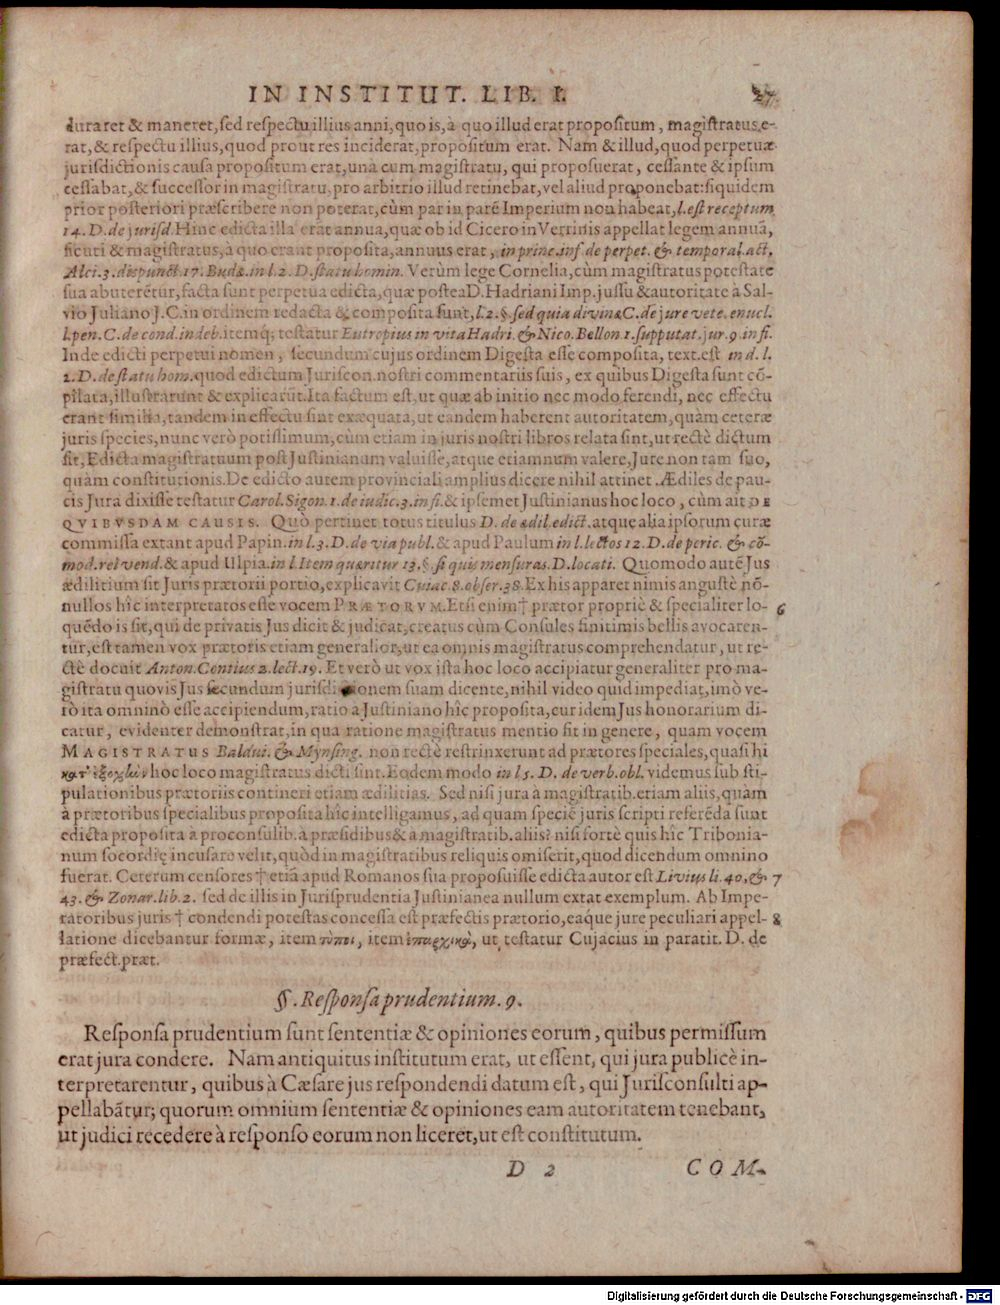 IN INSTITUT. LIB. I. 27.
duraret & maneret, sed respectu illius anni, quo is, à quo illud erat propositum, magistratus e-
rat, & respectu illius, quod prout res inciderat, propositum erat. Nam & illud, quod perpetuæ
jurisdictionis causa propositum erat, unà cum magistratu, qui proposuerat, cessante & ipsum
cessabat, & successor in magistratu, pro arbitrio illud retinebat, vel aliud proponebat: siquidem
prior posteriori præscribere non poterat, cùm par in parē Imperium non habeat, l. est receptum
14. D. de jurisd. Hinc edicta illa erāt annua, quæ ob id Cicero in Verrinis appellat legem annuā,
sicuti & magistratus, à quo erant proposita, annuus erat, in princ. inf. de perpet. & temporal. act.
Alci. 3. dispunct. 17. Budæ. in l. 2. D. statu homin. Verùm lege Cornelia, cùm magistratus potestate
sua abuterētur, facta sunt perpetua edicta, quæ postea D. Hadriani Imp. jussu & autoritate à Sal-
vio Juliano J. C. in ordinem redacta & composita sunt, l. 2. §. sed quia divinæ C. de jure vete. enucl.
l. pen. C. de cond. indeb. itemq; testatur Eutropius in vita Hadri. & Nico. Bellon. 1. supputat. jur. 9. in fi.
Inde edicti perpetui nomen, secundum cujus ordinem Digesta esse composita, text. est in d. l.
2. D. de statu hom. quod edictum Juriscon. nostri commentariis suis, ex quibus Digesta sunt cō-
pilata, illustrarunt & explicarūt. Ita factum est, ut quæ ab initio nec modo ferendi, nec effectu
erant similia, tandem in effectu sint exæquata, ut eandem haberent autoritatem, quàm ceteræ
juris species, nunc verò potissimum, cùm etiam in juris nostri libros relata sint, ut rectè dictum
sit, Edicta magistratuum post Justinianum valuisse, atque etiamnum valere, Jure non tam suo,
quàm constitutionis. De edicto autem provinciali amplius dicere nihil attinet. Ædiles de pau-
cis Jura dixisse testatur Carol. Sigon. 1. de iudic. 3. in fi. & ipsemet Justinianus hoc loco, cùm ait DE
QVIBVSDAM CAUSIS. Quò pertinet totus titulus D. de ædil. edict. atque alia ipsorum curæ
commissa extant apud Papin. in l. 3. D. de via publ. & apud Paulum in l. lectos 12. D. de peric. & cō-
mod. rei vend. & apud Ulpia. in l. Item quæritur 13. §. si quis mensuras. D. locati. Quomodo autē Jus
ædilitium sit Juris prætorii portio, explicavit Cuiac. 8. obser. 38. Ex his apparet nimis angustè nō-
nullos hîc interpretatos esse vocem PRÆTORVM. Etsi enim † prætor propriè & specialiter lo- 6
quēdo is sit, qui de privatis Jus dicit & judicat, creatus cùm Consules finitimis bellis avocaren-
tur, est tamen vox prætoris etiam generalior, ut ea omnis magistratus comprehendatur, ut re-
ctè docuit Anton. Contius 2. lect. 19. Et verò ut vox ista hoc loco accipiatur generaliter pro ma-
gistratu quovis Jus secundum jurisdi onem suam dicente, nihil video quid impediat, imò ve-
rò ita omninò esse accipiendum, ratio a Justiniano hîc proposita, cur idem Jus honorarium di-
catur, evidenter demonstrat, in qua ratione magistratus mentio fit in genere, quam vocem
MAGISTRATUS Baldui. & Mynsing. non rectè restrinxerunt ad prætores speciales, quasi hi
κατ' ἐξοχὼ hoc loco magistratus dicti sint. Eodem modo in l. 5. D. de verb. obl. videmus sub sti-
pulationibus prætoriis contineri etiam ædilitias. Sed nisi jura à magistratib. etiam aliis, quàm
à prætoribus specialibus proposita hîc intelligamus, ad quam speciē juris scripti referēda sunt
edicta proposita a proconsulib. à præsidibus & a magistratib. aliis? nisi fortè quis hîc Tribonia-
num socordię incusare velit, quòd in magistratibus reliquis omiserit, quod dicendum omnino
fuerat. Ceterum censores † etiā apud Romanos sua proposuisse edicta autor est Livius li. 40, & 7
43. & Zonar. lib. 2. sed de illis in Jurisprudentia Justinianea nullum extat exemplum. Ab Impe-
ratoribus juris † condendi potestas concessa est præfectis prætorio, eaque jure peculiari appel- 8
latione dicebantur formæ, item τύποι, item ἐπαρχικὰ, ut testatur Cujacius in paratit. D. de
præfect. præt.
§. Responsa prudentium. 9.
Responsa prudentium sunt sententiæ & opiniones eorum, quibus permissum
erat jura condere. Nam antiquitus institutum erat, ut essent, qui jura publicè in-
terpretarentur, quibus à Cæsare jus respondendi datum est, qui Jurisconsulti ap-
pellabātur; quorum omnium sententiæ & opiniones eam autoritatem tenebant,
ut judici recedere à responso eorum non liceret, ut est constitutum.
D 2 COM-
Digitalisierung gefördert durch die Deutsche Forschungsgemeinschaft - DFG